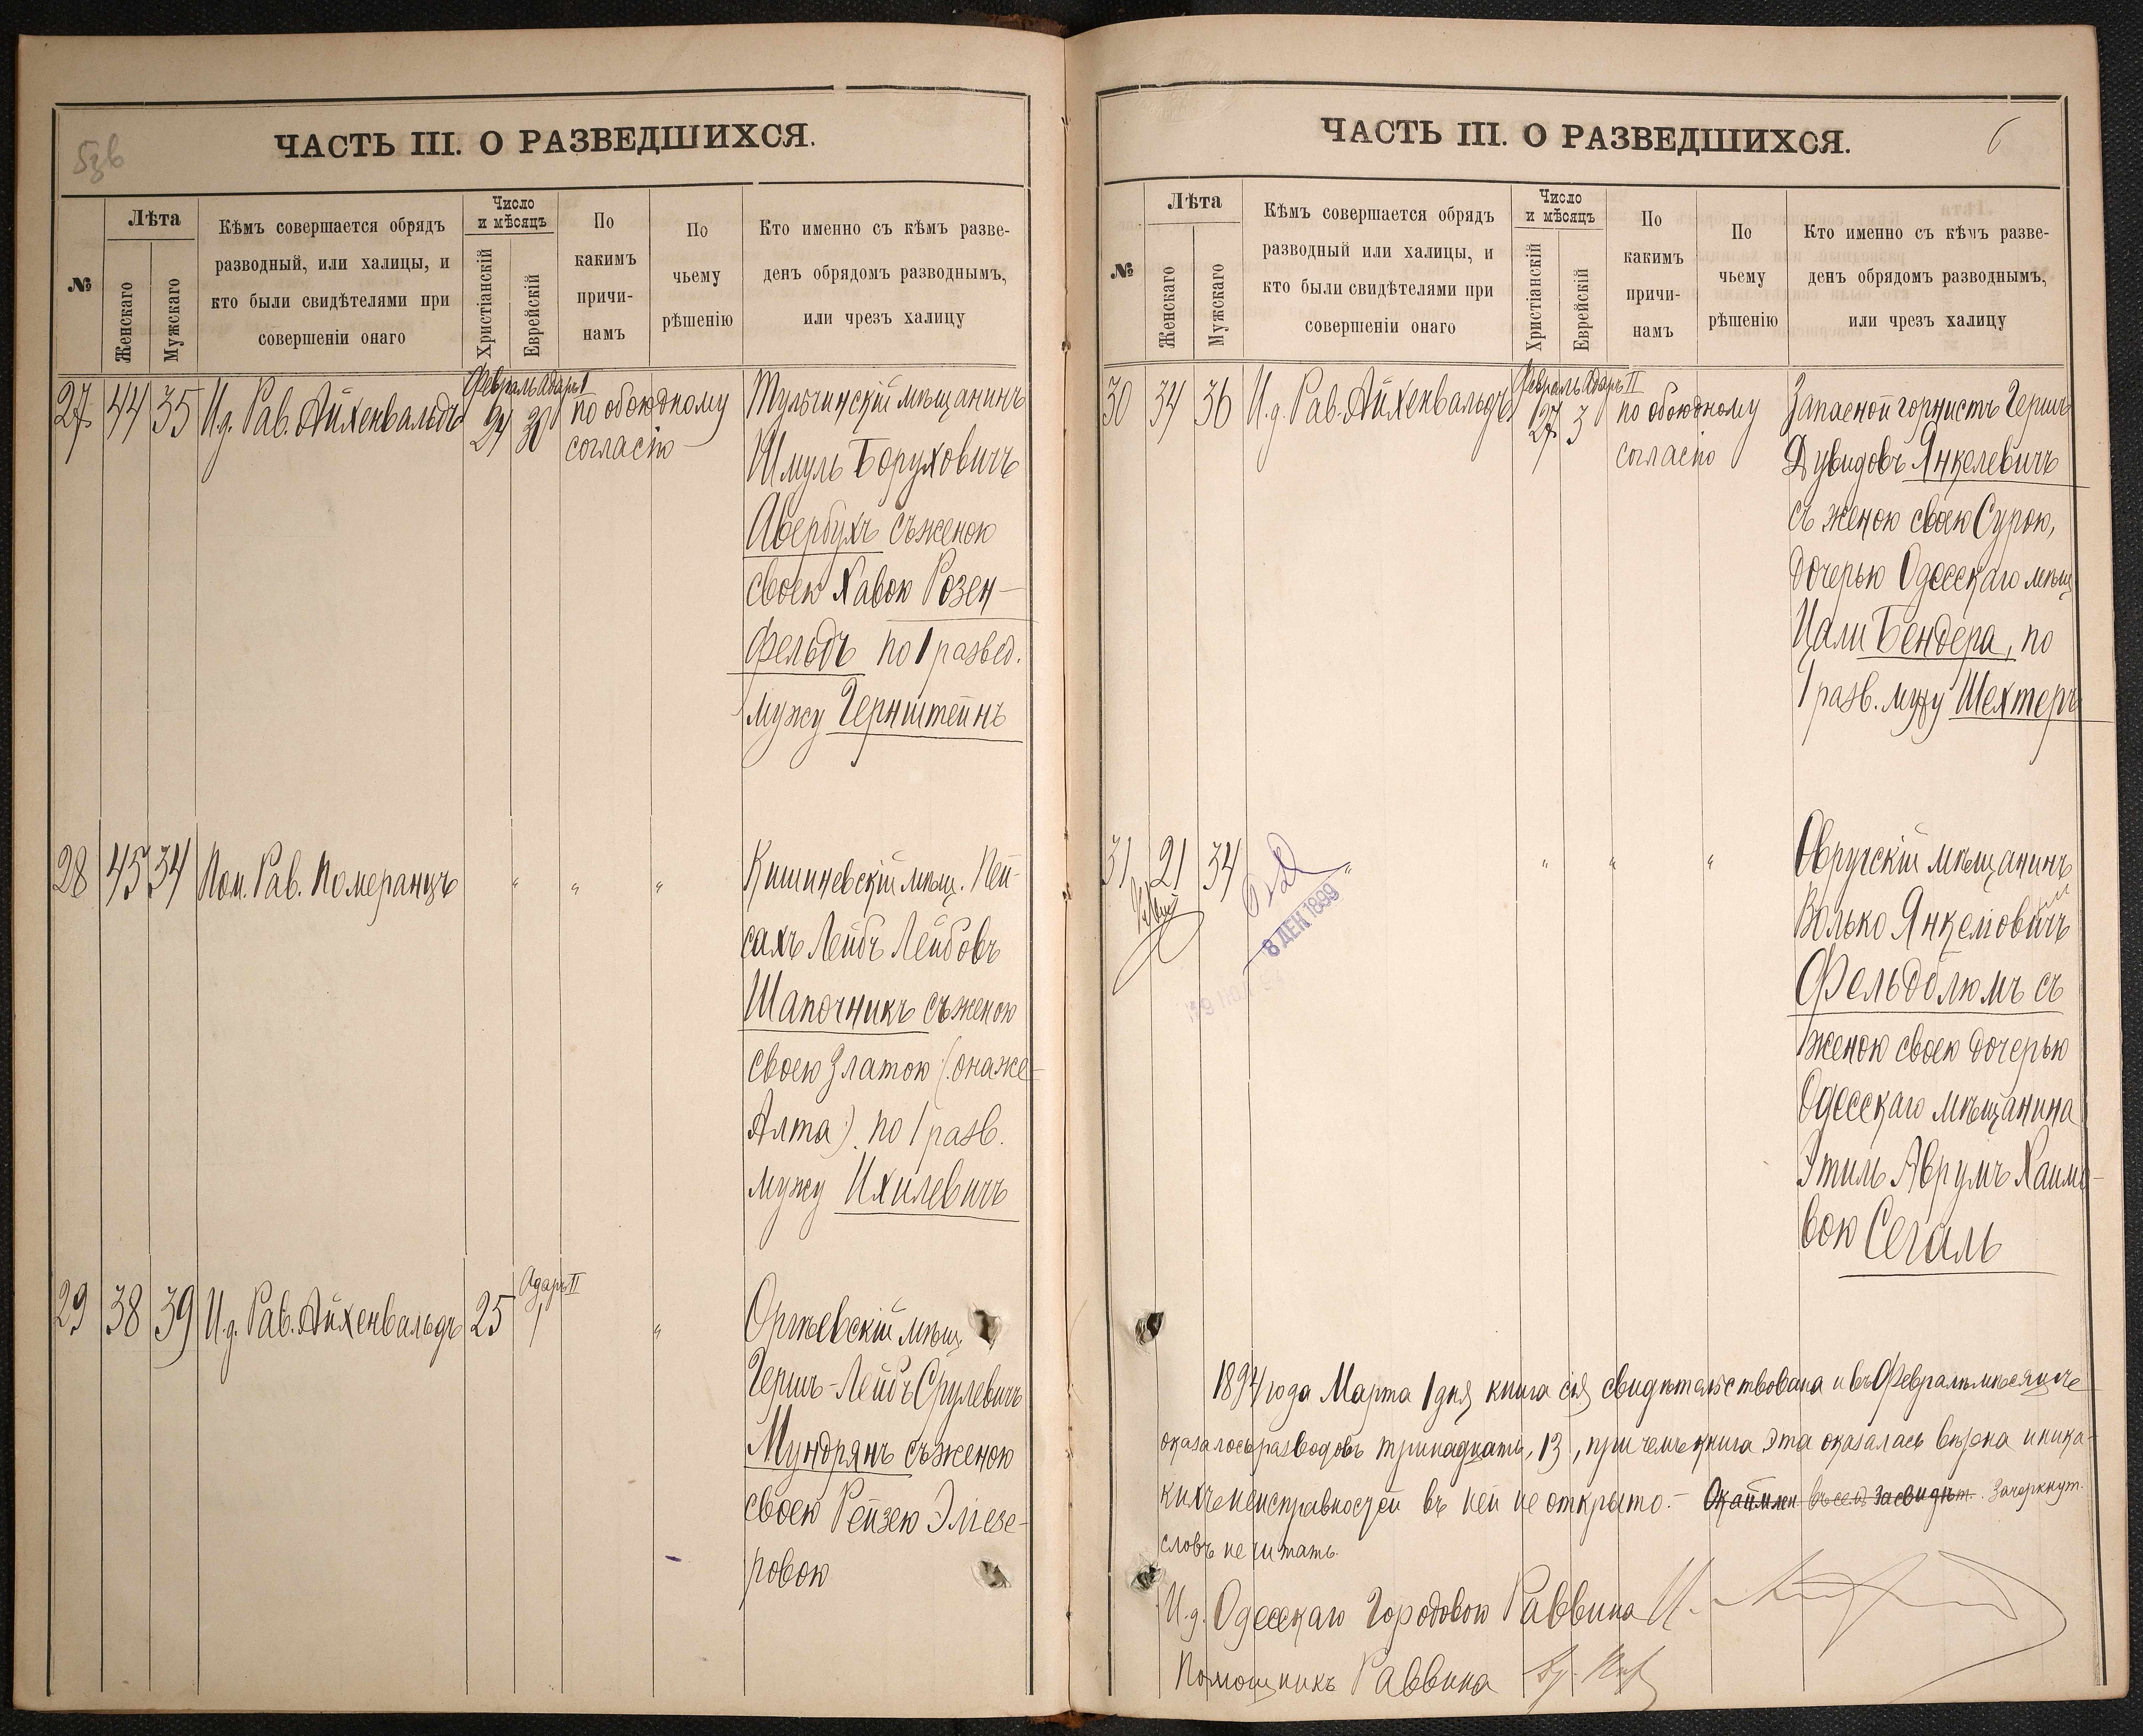 5зв
ЧАСТЬ III. О РАЗВЕДШИХСЯ.
№
Лѣта
Женскаго
Мужскаго
Кѣмъ совершается обрядъ
разводный, или халицы, и
кто были свидѣтелями при
совершеніи онаго
Число
и мѣсяцъ
Христіанскій
Еврейскій
По
какимъ
причи-
намъ
По
чьему
рѣшенію
Кто именно съ кѣмъ разве-
денъ обрядомъ разводнымъ,
или чрезъ халицу
Февраль Адаръ I
27 44 35 И.д. Рав. Айхенвальдъ 24 30 по обоюдному
согласію
Тульчинскій мѣщанинъ
Шмуль Боруховичъ
Авербухъ съ женою
своею Хавою Розен-
фельдъ по 1 развед.
мужу Гернштейнъ
28 45 34 Пом. Рав. Померанцъ " " "
Кишиневскій мѣщ. Пей-
сахъ Лейбъ Лейбовъ
Шапочникъ съ женою
своею Златою (она же
Алта) по 1 разв.
мужу Ихилевичъ
Адаръ II
29 38 39 И.д. Рав. Айхенвальдъ 25 1 "
Оргѣевскій мѣщ.
Гершъ-Лейбъ Срулевичъ
Мундрянъ съ женою
своею Рейзею Элiезе-
ровою
6
ЧАСТЬ III. О РАЗВЕДШИХСЯ.
№
Лѣта
Женскаго
Мужскаго
Кѣмъ совершается обрядъ
разводный или халицы, и
кто были свидѣтелями при
совершеніи онаго
Число
и мѣсяцъ
Христіанскій
Еврейскій
По
какимъ
причи-
намъ
По
чьему
рѣшенію
Кто именно съ кѣмъ разве-
денъ обрядомъ разводнымъ,
или чрезъ халицу
Февраль Адаръ II
30 34 36 И.д. Рав. Айхенвальдъ 27 3 по обоюдному
согласію
Запасной горнистъ Гершъ
Дувидовъ Янкелевичъ
съ женою своею Сурою,
дочерью Одесскаго мѣщ.
Цали Бендера, по
1 разв. мужу Шехтеръ
31 21 34 " " " "
8 ДЕК 1899
Овручскій мѣщанинъ
Волько Янкеловичъ
Фельдблюмъ съ
женою своею дочерью
Одесскаго мѣщанина
Этиль Аврумъ Хаимо-
вою Сегаль
1894 года Марта 1 дня книга сія свидѣтельствована и въ Февралѣ мѣсяцѣ
оказалось разводовъ тринадцать, 13, при чемъ книга эта оказалась вѣрна и ника-
кихъ неисправностей въ ней не открыто.- засвидѣт. Зачеркнут.
словъ не читать.
И.д. Одесскаго Городового Раввина
Помощникъ Раввина